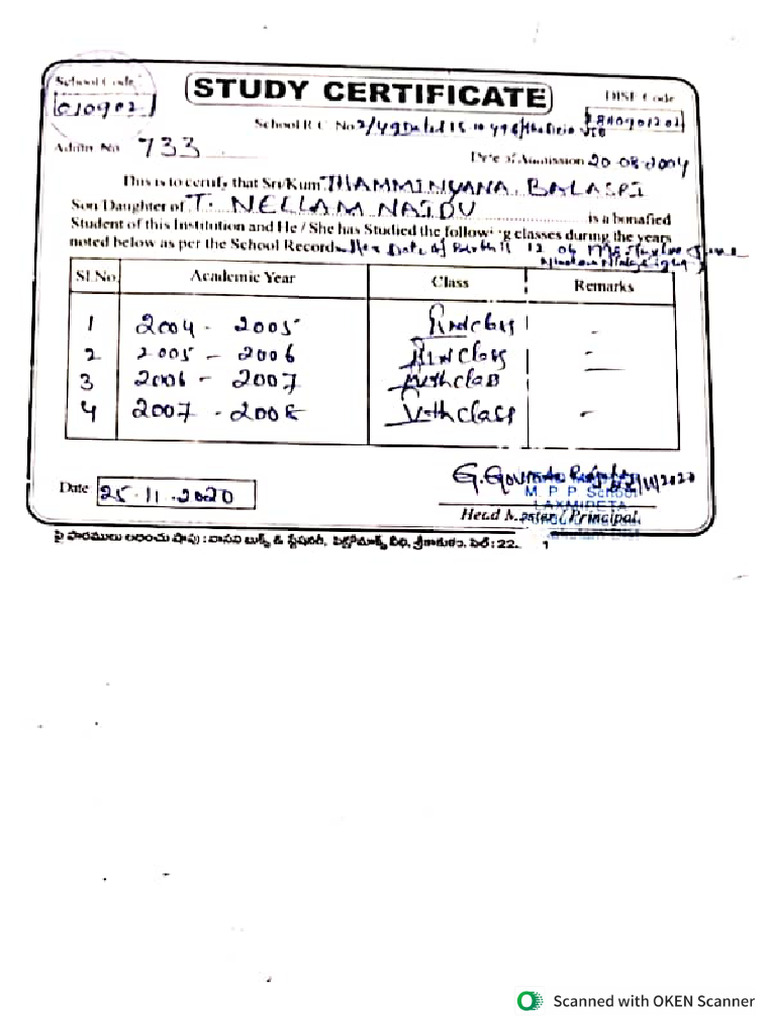 School Code
STUDY CERTIFICATE
DISE Code
010902
School R.C. No 2/49 Dated 15.10.49
Admn. No 733
Date of Admission 20-08-2004
This is to certify that Sri/Kum THAMMINYANA. BALASRI
Son/Daughter of T. NELLAM NAIDU is a bonafied
Student of this Institution and He / She has Studied the following classes during the years
noted below as per the School Record Her Date of Birth is 12 06
Sl.No. Academic Year Class Remarks
1 2004 - 2005 class -
2 2005 - 2006 class -
3 2006 - 2007 class
4 2007 - 2008 V-th class -
Date 25-11-2020
G. Govinda
M. P. P. School
LAXMIPETA
Head Master / Principal
పై ఫారములు లభించు షాపు : వాసవి బుక్స్ & స్టేషనరీ, వీధి, శ్రీకాకుళం, సెల్ : 22. 1
Scanned with OKEN Scanner